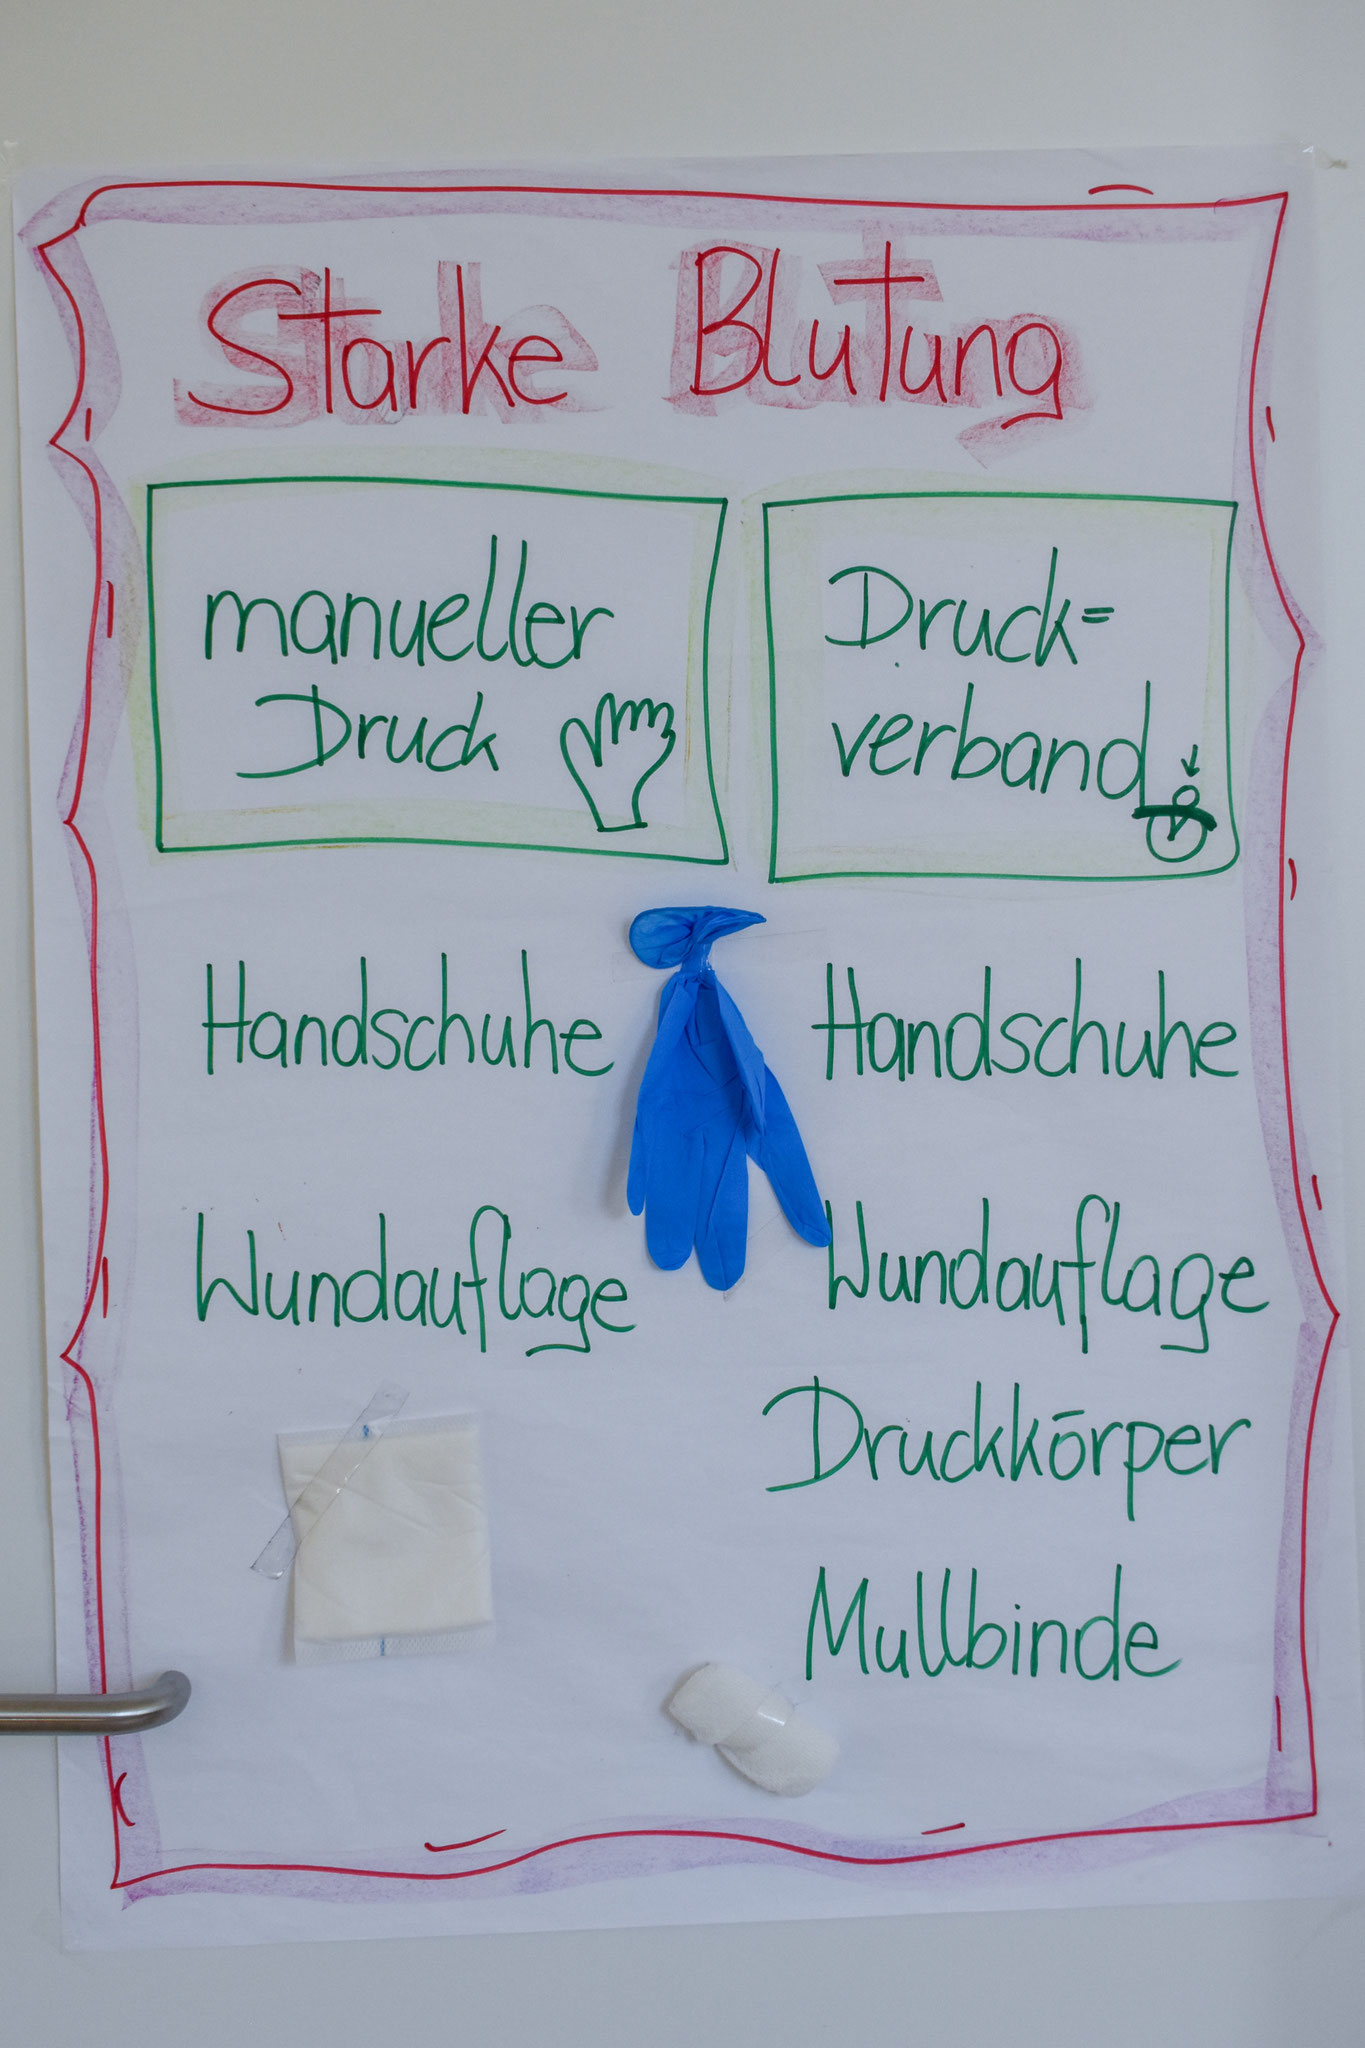 Starke Blutung
manueller
Druck
Druck=
verband
Handschuhe
Wundauflage
Handschuhe
Wundauflage
Druckkörper
Mullbinde